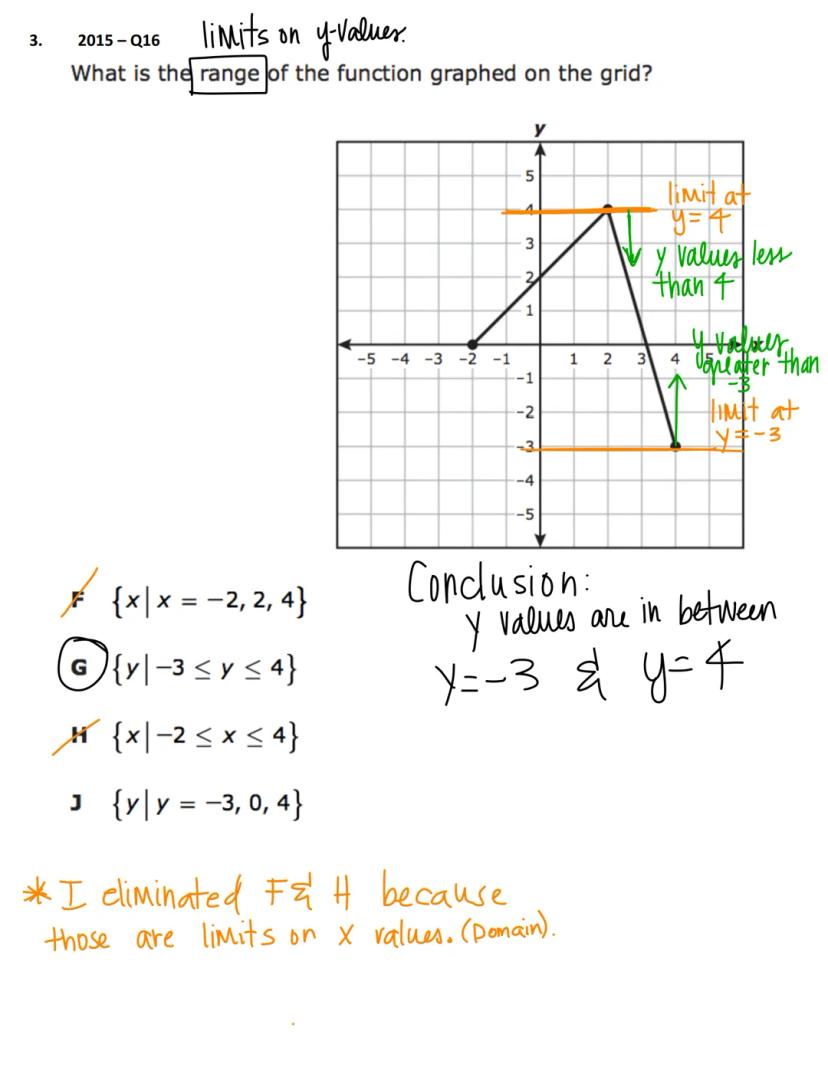 limits on y-values.
3. 2015 – Q16
What is the range of the function graphed on the grid?
y
5
4
3
2
1
-5 -4 -3 -2 -1 1 2 3 4 5
-1
-2
-3
-4
-5
limit at
y = 4
y values less
than 4
y values
greater than
-3
limit at
y = -3
F {x|x = −2, 2, 4}
G {y|−3 ≤ y ≤ 4}
H {x|−2 ≤ x ≤ 4}
J {y|y = −3, 0, 4}
Conclusion:
y values are in between
y = -3 & y = 4
* I eliminated F & H because
those are limits on x values. (Domain).